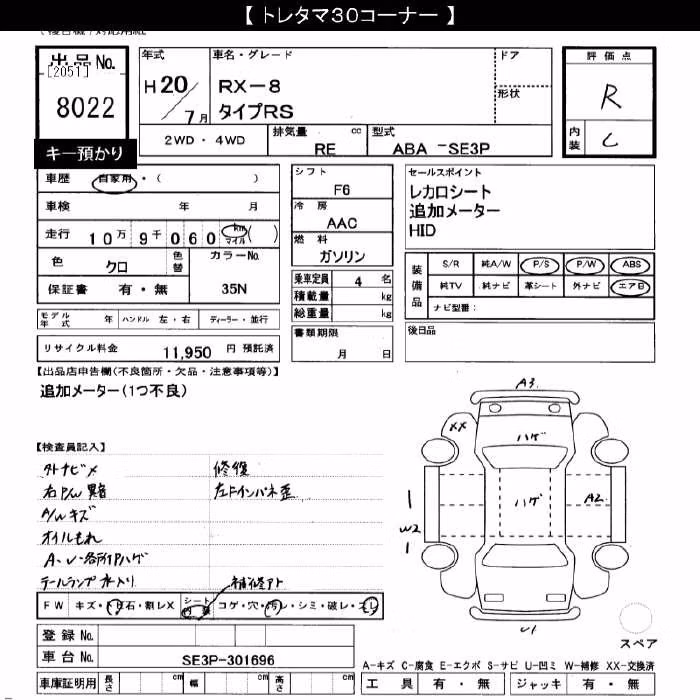 【 トレタマ30コーナー 】
出品No.
[2051]
8022
キー預かり
年式
H20/7月
車名・グレード
RX-8
タイプRS
ドア
形状
評価点
R
内装 C
2WD・4WD
排気量 cc
RE
型式
ABA -SE3P
車歴 自家用・( )
車検 年 月
走行 10万9千060 km マイル ( )
色 クロ 色替
カラーNo. 35N
保証書 有・無
シフト
F6
冷房
AAC
燃料
ガソリン
乗車定員 4 名
積載量 kg
総重量 kg
セールスポイント
レカロシート
追加メーター
HID
装備品
S/R 純A/W P/S P/W ABS
純TV 純ナビ 革シート 外ナビ エアB
ナビ型番:
モデル年式 年 ハンドル 左・右 ディーラー・並行
リサイクル料金 11,950 円 預託済
書類期限
月 日
後日品
【出品店申告欄(不良箇所・欠品・注意事項等)】
追加メーター(1つ不良)
【検査員記入】
外ナビメ
右P/W異音
A/Wキズ
オイルもれ
A、V、各所Pハゲ
テールランプ水入り
修復
左ドインパネ歪
補修アト
FW キズ・トビ石・割レX シート 内張 コゲ・穴・汚レ・シミ・破レ・スレ
登録No.
車台No. SE3P-301696
車庫証明用 長さ cm 幅 cm 高さ cm
A3
XX
ハゲ
ハゲ
W2
A2
U1
スペア
A-キズ C-腐食 E-エクボ S-サビ U-凹ミ W-補修 XX-交換済
工具 有・無 ジャッキ 有・無